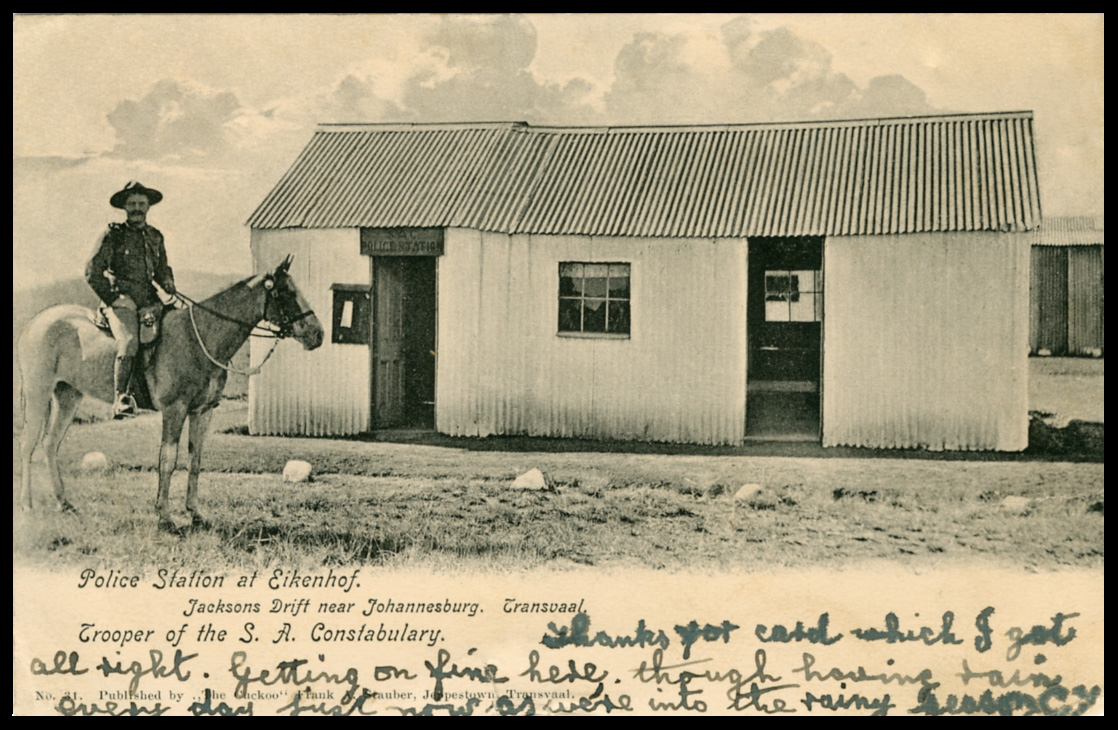 POLICE STATION
Police Station at Eikenhof.
Jacksons Drift near Johannesburg. Transvaal.
Trooper of the S. A. Constabulary.
Thanks for card which I got
all right. Getting on fine here, though having rain
No. 31. Published by „The Cuckoo“ Frank A. Stauber, Jeppestown, Transvaal.
every day just now as we're into the rainy season